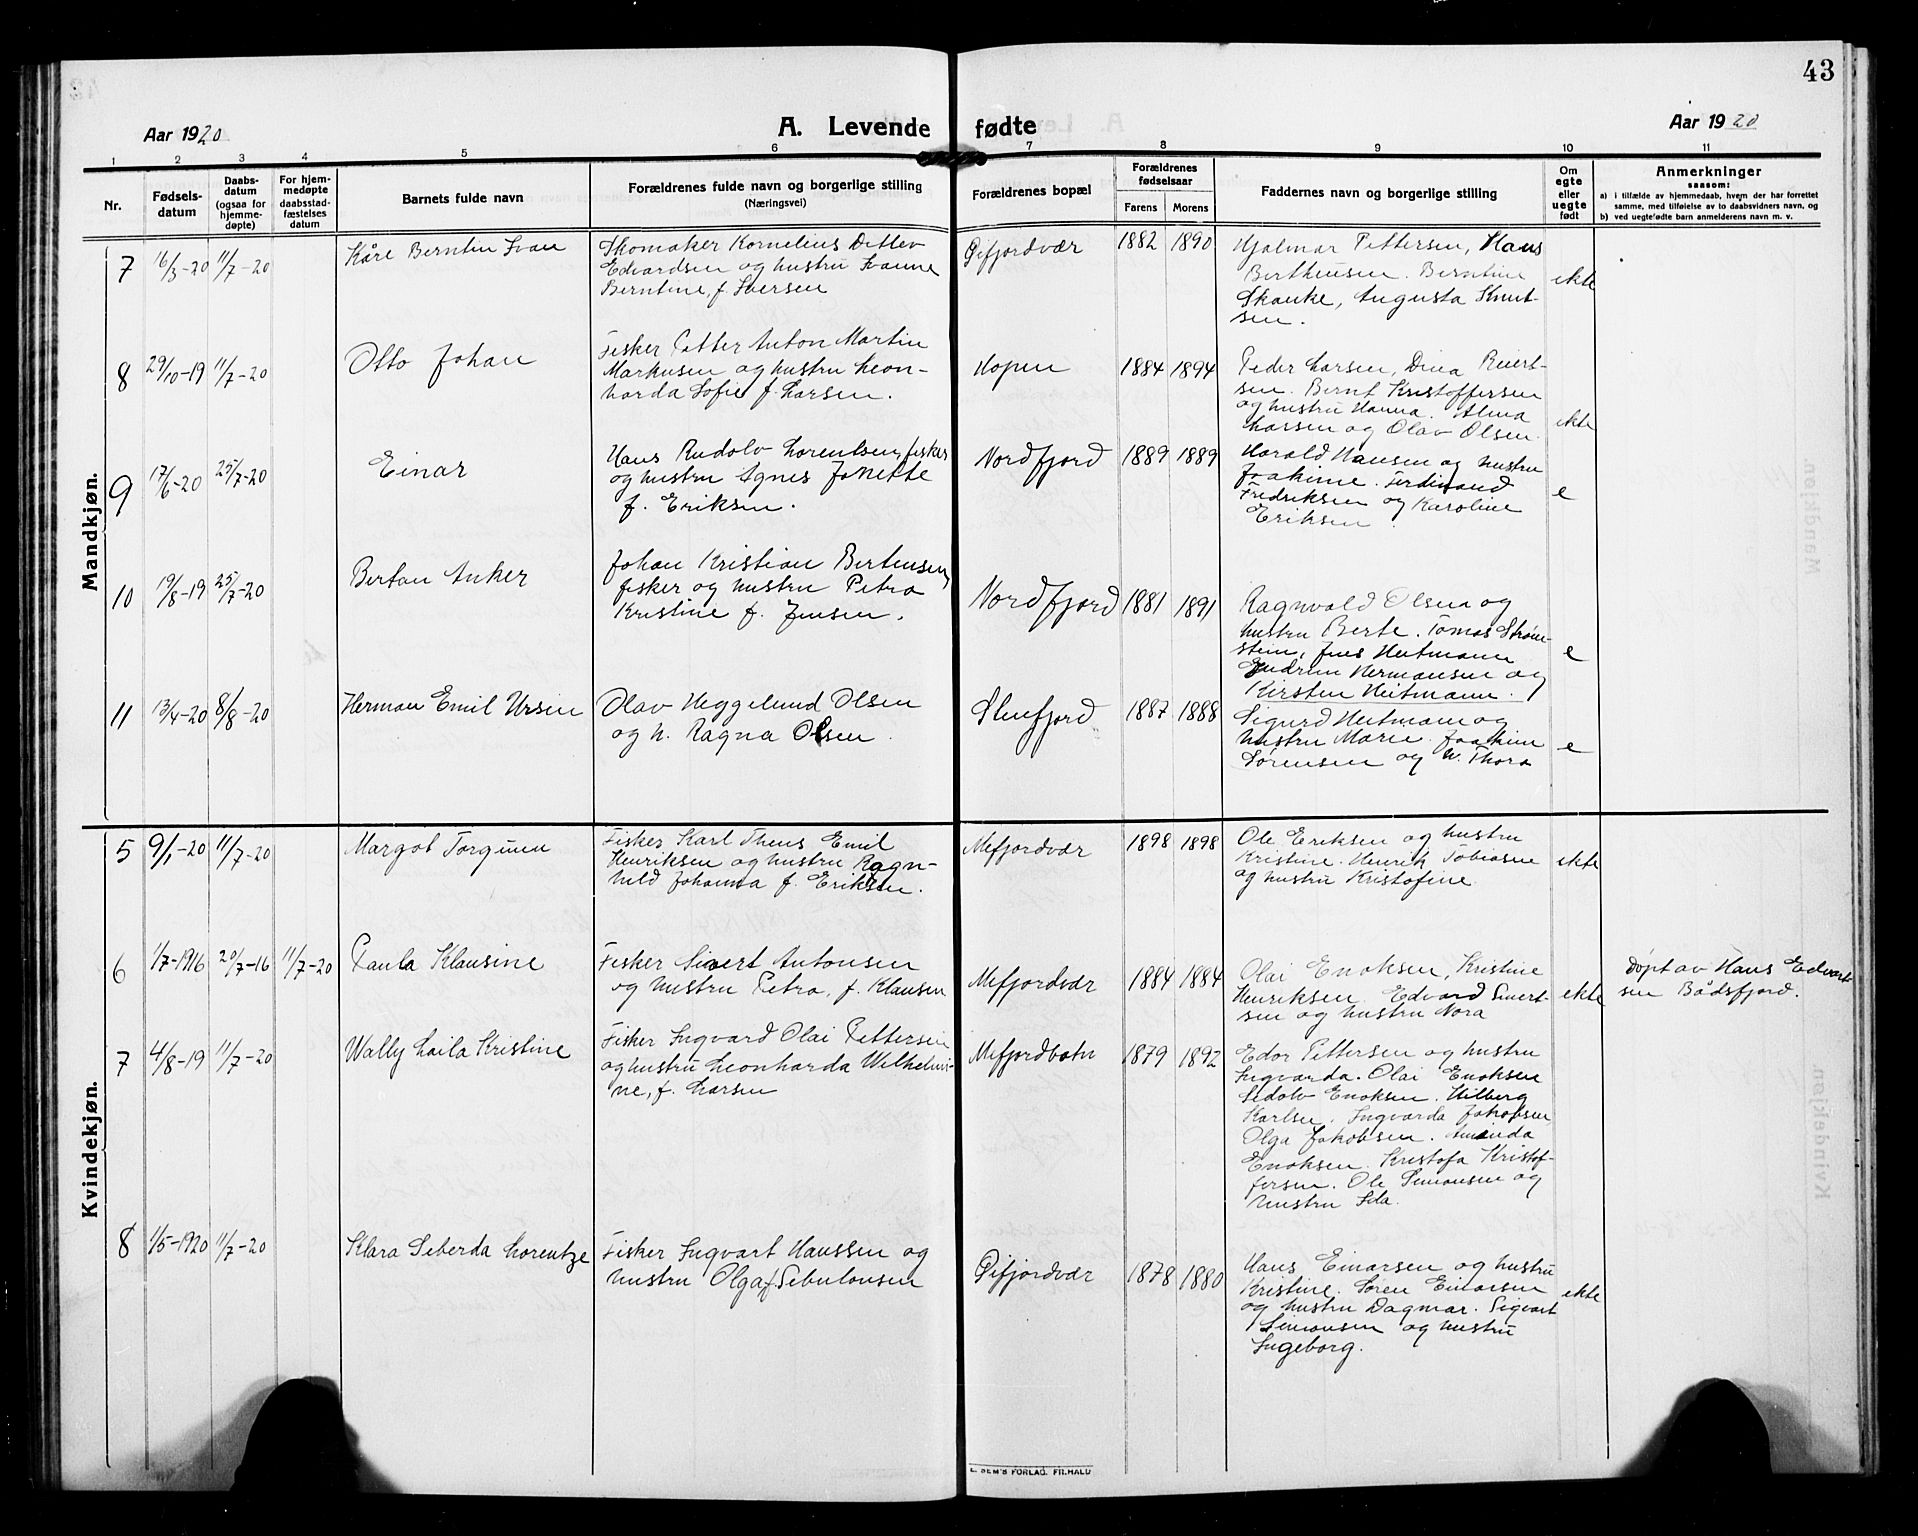 43
Aar 1920
A. Levende fødte
Aar 1920
1 2 3 4 5 6 7 8 9 10 11
Nr.
Fødsels-
datum
Daabs-
datum
(ogsaa for
hjemme-
døpte)
For hjem-
medøpte
daabsstad-
fæstelses
datum
Barnets fulde navn
Forældrenes fulde navn og borgerlige stilling
(Næringsvei)
Forældrenes bopæl
Forældrenes
fødselsaar
Farens
Morens
Faddernes navn og borgerlige stilling
Om
egte
eller
uegte
født
Anmerkninger
saasom:
a) i tilfælde av hjemmedaab, hvem der har forrettet
samme, med tilføielse av to daabsvidners navn, og
b) ved uegtefødte barn anmelderens navn m. v.
Mandkjøn.
7 16/3-20 11/7-20
Kåre Berntin Ivan
Skomaker Kornelius Ditlev
Edvardsen og hustru Ivanna
Berntine, f. Iversen
Øifjordvær
1882 1890
Hjalmar Pettersen, Hans
Bertheussen. Berntine
Skanke, Augusta Knut-
sen.
ekte
8 29/10-19 11/7-20
Otto Johan
Fisker Petter Anton Martin
Markusen og hustru Leon-
harda Sofie f. Larsen.
Hopen
1884 1894
Peder Larsen, Dina Reiert-
sen. Bernt Kristoffersen
og hustru Hanna. Alma
Larsen og Olav Olsen.
ekte
9 17/6-20 25/7-20
Einar
Hans Rudolv Lorentsen, fisker
og hustru Agnes Jonette
f. Eriksen.
Nordfjord
1889 1889
Harald Hansen og hustru
Joakime. Ferdinand
Fredriksen og Karoline
Eriksen
e
10 19/8-19 25/7-20
Bertan Anker
Johan Kristian Bertensen,
fisker og hustru Petra
Kristine f. Jensen.
Nordfjord
1881 1891
Ragnvald Olsen og
hustru Berte. Tomas Strøm-
stein, Jens Heitmann
Gudrun Hermansen og
Kirsten Heitmann.
e
11 13/4-20 8/8-20
Herman Emil Ursin
Olav Heggelund Olsen
og h. Ragna Olsen.
Steufjord
1887 1888
Sigurd Heitmann og
hustru Marie. Joakim
Sørensen og h. Thora
e
Kvindekjøn.
5 9/1-20 11/7-20
Margot Torgunn
Fisker Karl Thens Emil
Henriksen og hustru Ragn-
hild Johanna f. Eriksen.
Mefjordvær
1898 1898
Ole Eriksen og hustru
Kristine. Henrik Tobiasne
og hustru Kristofine.
ekte
6 1/7-1916 20/7-16 11/7-20
Paula Klausine
Fisker Sivert Antonsen
og hustru Petra, f. Klausen
Mefjordvær
1884 1884
Olai Enoksen, Kristine
Henriksen. Edvard Sivert-
sen og hustru Nora
ekte
Døpt av Hans Edvart-
sen Bådsfjord.
7 4/8-19 11/7-20
Wally Laila Kristine
Fisker Ingvard Olai Pettersen
og hustru Leonharda Wilhelmi-
ne, f. Larsen
Mefjordbotn
1879 1892
Edor Pettersen og hustru
Ingvarda. Olai Enoksen
Sedolv Enoksen. Hilberg
Karlsen. Ingvarda Jakobsen
Olga Jakobsen. Amanda
Enoksen. Kristofa Kristof-
fersen. Ole Simonsen og
hustru Ida.
8 1/5-1920 11/7-20
Klara Seberda Lorentze
Fisker Ingvart Hanssen og
hustru Olga f. Sebulonsen
Øifjordvær
1878 1880
Hans Einarsen og hustru
Kristine. Søren Einarsen
og hustru Dagmar. Sigvart
Simonsen og hustru
Ingeborg.
ekte
E. SEM'S FORLAG, FR.HALD